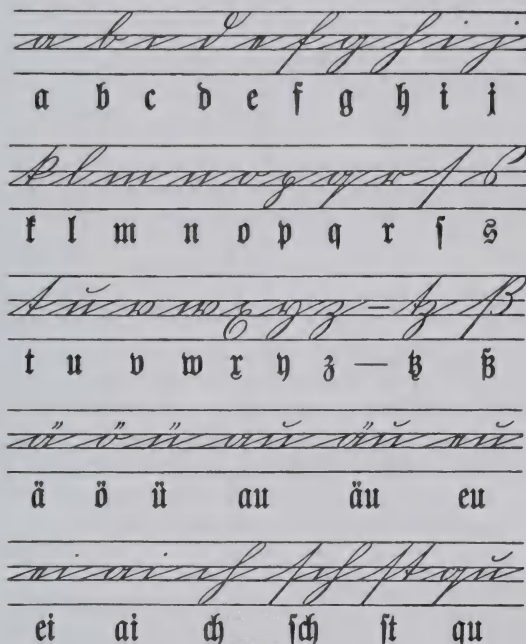 a b c d e f g h i j
a b c d e f g h i j
k l m n o p q r ſ s
k l m n o p q r ſ s
t u v w x y z — tz ß
t u v w x y z — tz ß
ä ö ü au äu eu
ä ö ü au äu eu
ei ai ch ſch ſt qu
ei ai ch ſch ſt qu